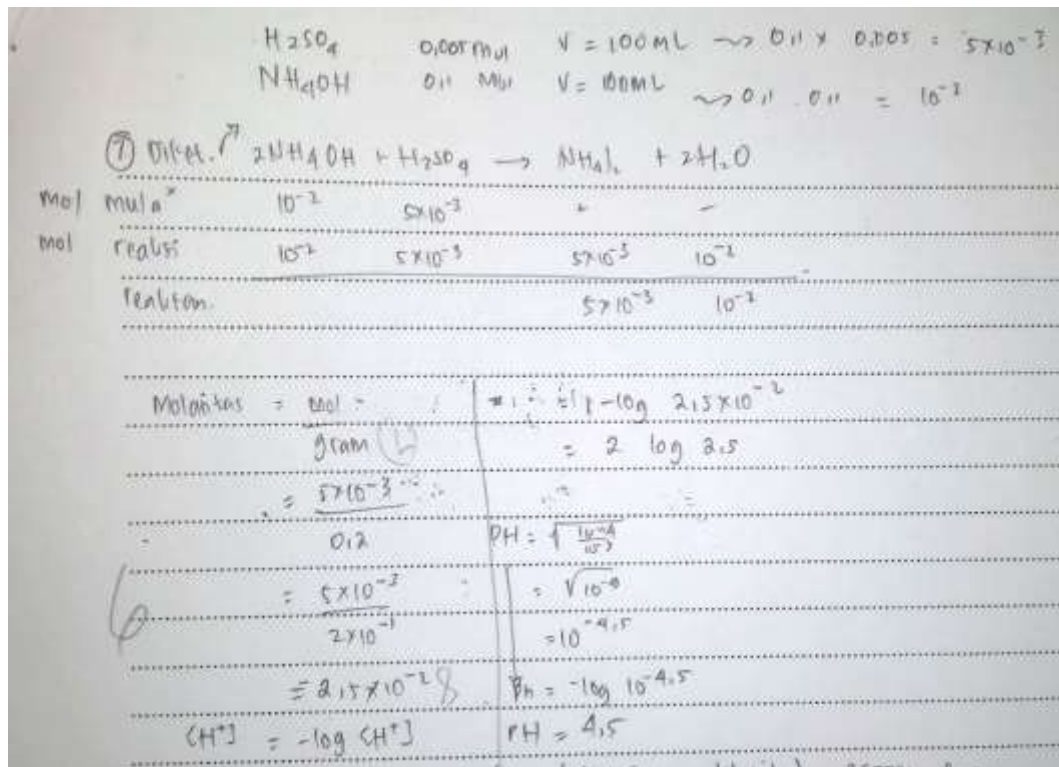 H2SO4 0,005 mol V = 100 mL ~> 0,1 x 0,005 = 5x10-3
NH4OH 0,1 Mol V = 100mL ~> 0,1 . 0,1 = 10-2
7 Diket. 2NH4OH + H2SO4 → + 2H2O
mol mula" 10-2 5x10-3 - -
mol reaksi 10-2 5x10-3 5x10-3 10-2
5x10-3 10-2
Molaritas = mol
gram (L)
= 5x10-3
0,2
= 5x10-3
2x10-1
= 2,5x10-2
[H+] = -log [H+]
-log 2,5x10-2
= 2 log 2.5
PH = √
= √
= 10-4,5
Ph = -log 10-4.5
PH = 4,5